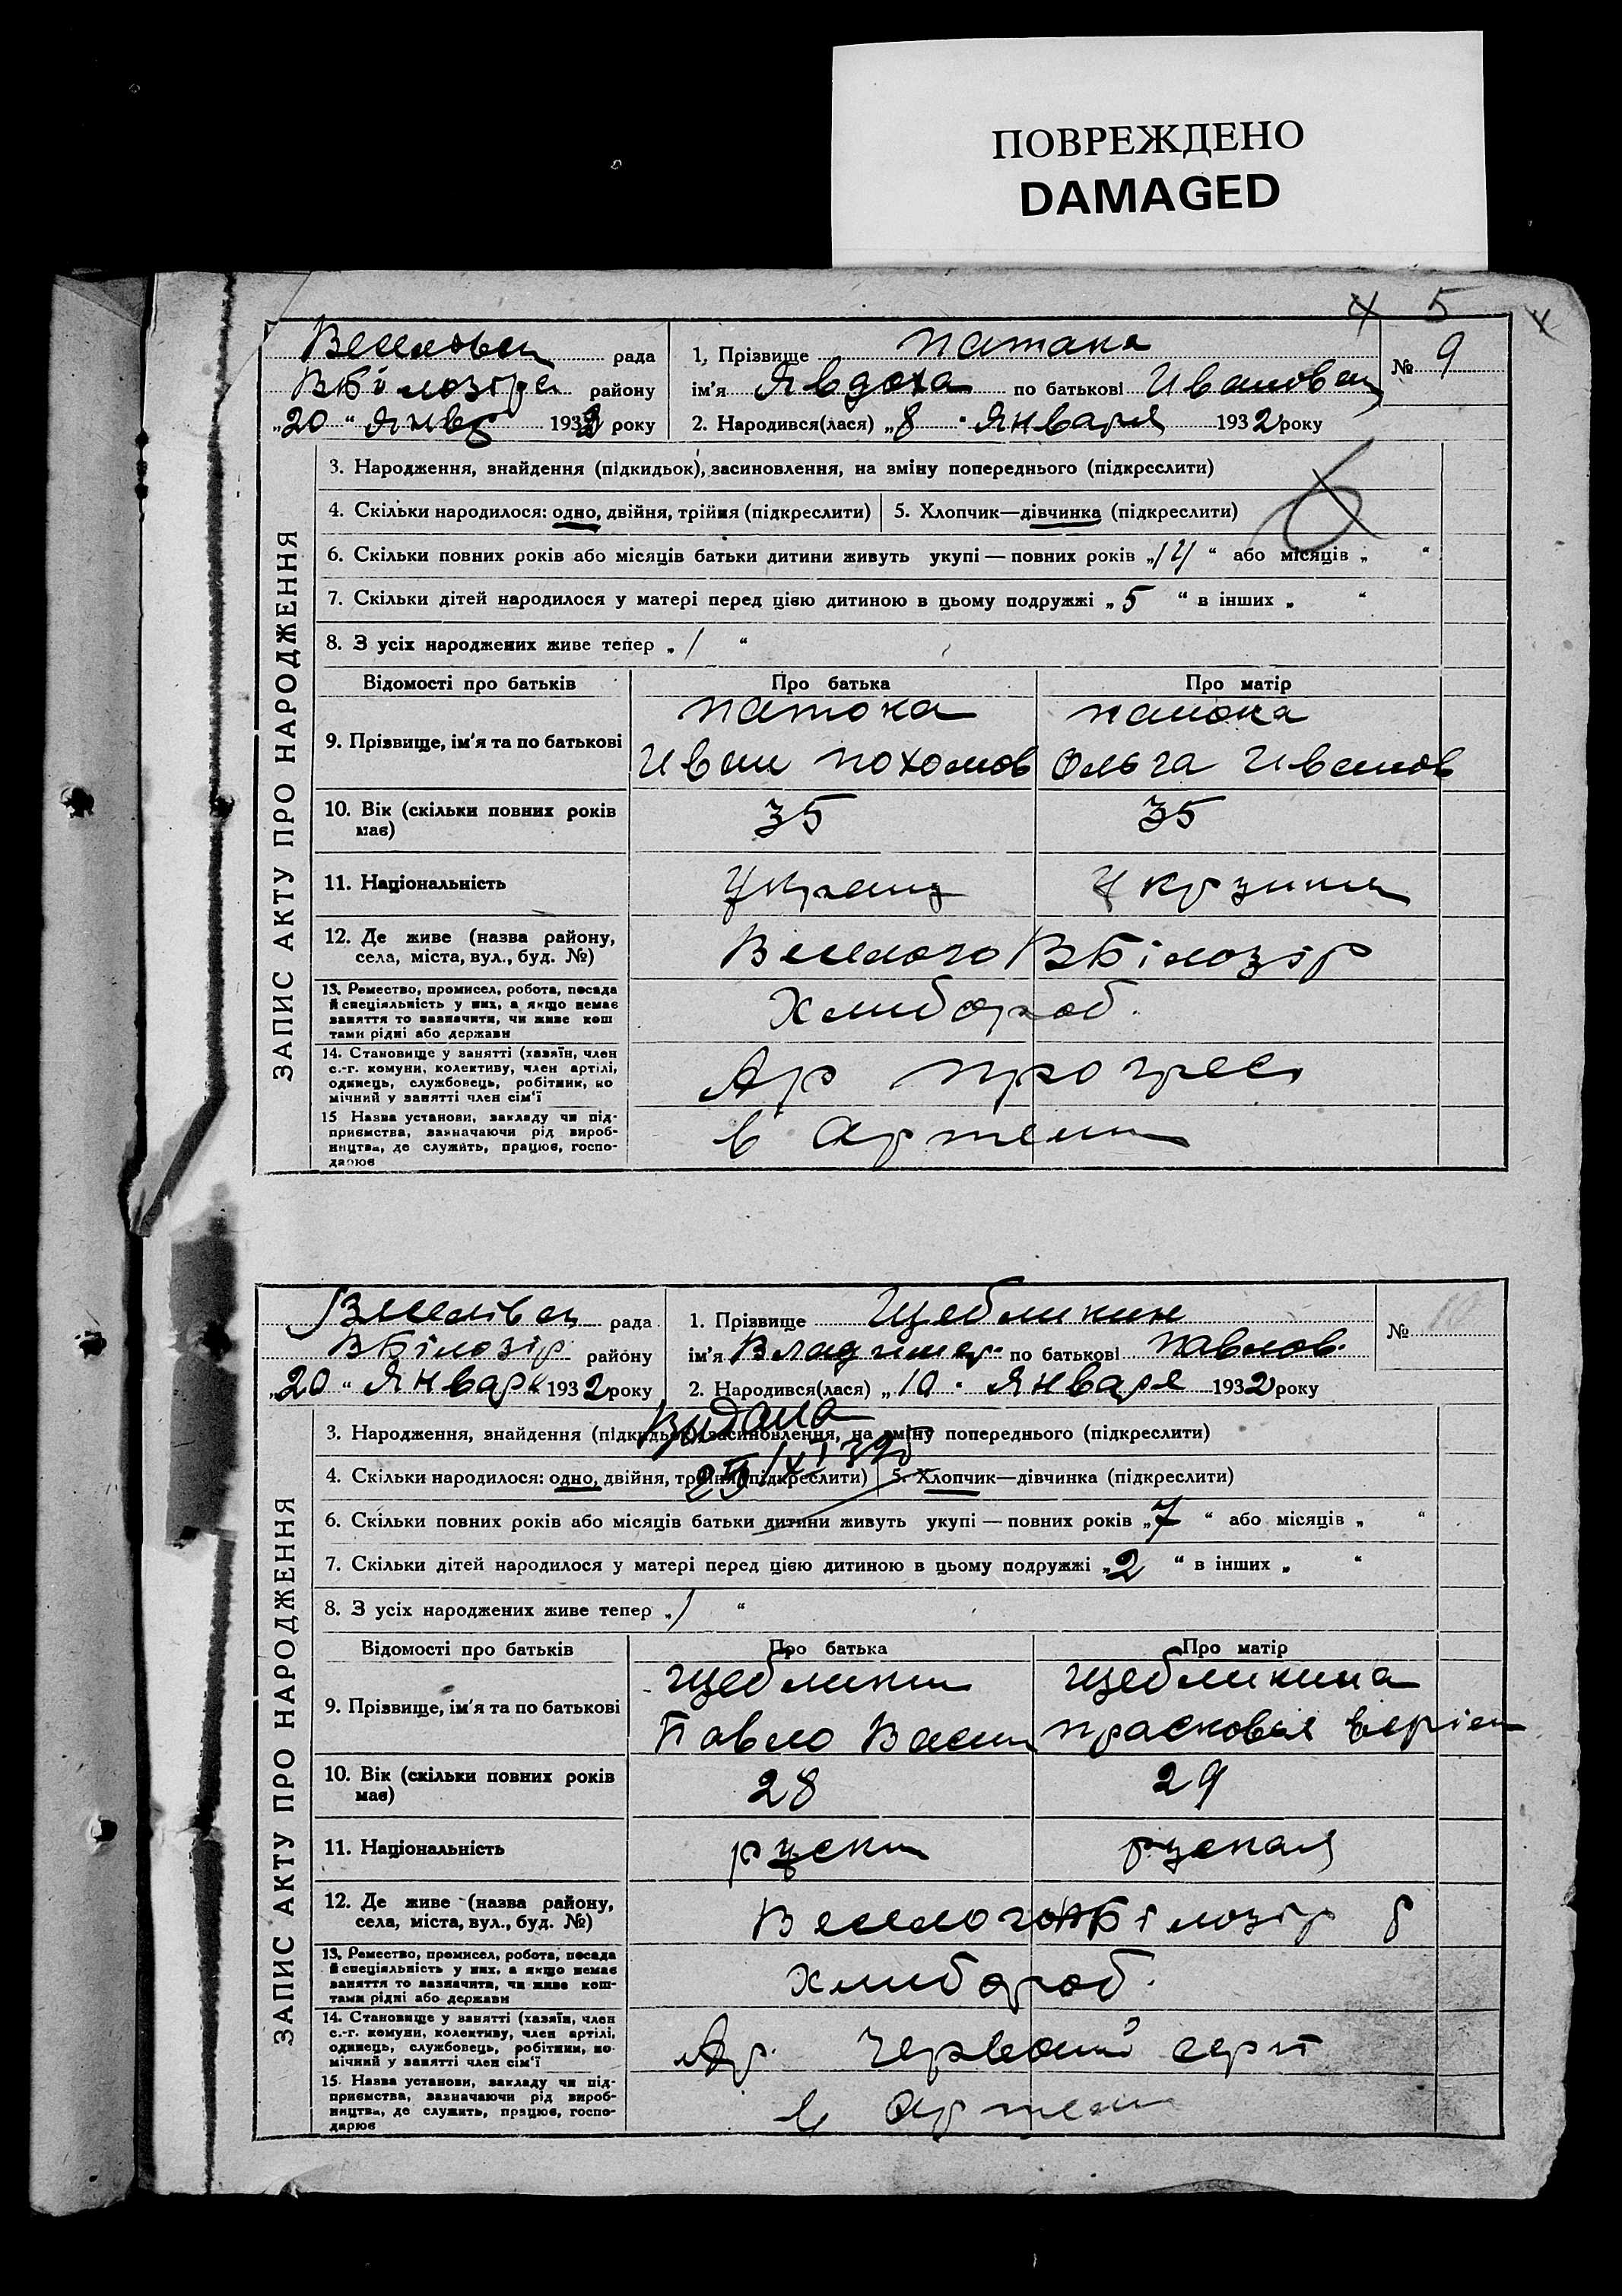 ПОВРЕЖДЕНО
DAMAGED
4 5
рада
ВБілозіре району
„20 “ Янвр 1932 року
1, Прізвище Патака
ім’я Явдоха по батькові Иванован
№ 9
2. Народився(лася) „8 “ Января 1932 року
ЗАПИС АКТУ ПРО НАРОДЖЕННЯ
3. Народження, знайдення (підкидьок), засиновлення, на зміну попереднього (підкреслити)
4. Скільки народилося: одно, двійня, трійня (підкреслити) 5. Хлопчик—дівчинка (підкреслити)
6. Скільки повних років або місяців батьки дитини живуть укупі — повних років „14 “ або місяців „ “
7. Скільки дітей народилося у матері перед цією дитиною в цьому подружжі „ 5 “ в інших „ “
8. З усіх народжених живе тепер „ 1 “
Відомості про батьків Про батька Про матір
9. Прізвище, ім’я та по батькові
Патока
Иван Похомов
Патока
Ольга Иванов
10. Вік (скільки повних років має)
35 35
11. Національність
Украинц
12. Де живе (назва району, села, міста, вул., буд. №)
Веселого ВБілозір
13. Ремество, промисел, робота, посада
й спеціяльність у них, а якщо немає
заняття то зазначити, чи живе кош
тами рідні або держави
Хлибороб.
14. Становище у занятті (хазяїн, член
с.-г. комуни, колективу, член артілі,
одинець, службовець, робітник, по
мічний у занятті член сім’ї
Ар прогрес
15 Назва установи, закладу чи під-
приємства, зазначаючи рід вироб-
ництва, де служить, працює, госпо-
дарює
в Артели
рада
ВБілозір району
„20 “ Января 1932 року
1. Прізвище Щебликин
ім’я Владимер. по батькові Павлов.
№ 10
2. Народився(лася) „ 10 “ Января 1932 року
Видана
ЗАПИС АКТУ ПРО НАРОДЖЕННЯ
3. Народження, знайдення (підкидьок), засиновлення, на зміну попереднього (підкреслити)
4. Скільки народилося: одно, двійня, трійня (підкреслити) 5. Хлопчик—дівчинка (підкреслити)
6. Скільки повних років або місяців батьки дитини живуть укупі — повних років „7 “ або місяців „ “
7. Скільки дітей народилося у матері перед цією дитиною в цьому подружжі „2 “ в інших „ “
8. З усіх народжених живе тепер „ 1 “
Відомості про батьків Про батька Про матір
9. Прізвище, ім’я та по батькові
Щебликин
Павло Васил
Щебликина
Прасковея
10. Вік (скільки повних років має)
28 29
11. Національність
руски руская
12. Де живе (назва району, села, міста, вул., буд. №)
Веселого ВБілозір р
13. Ремество, промисел, робота, посада
й спеціяльність у них, а якщо немає
заняття то зазначити, чи живе кош-
тами рідні або держави
Хлибороб.
14. Становище у занятті (хазяїн, член
с.-г. комуни, колективу, член артілі,
одинець, службовець, робітник, по-
мічний у занятті член сім’ї
Ар. Червоний серп
15. Назва установи, закладу чи під-
приємства, зазначаючи рід вироб-
ництва, де служить, працює, госпо-
дарює
в Артели